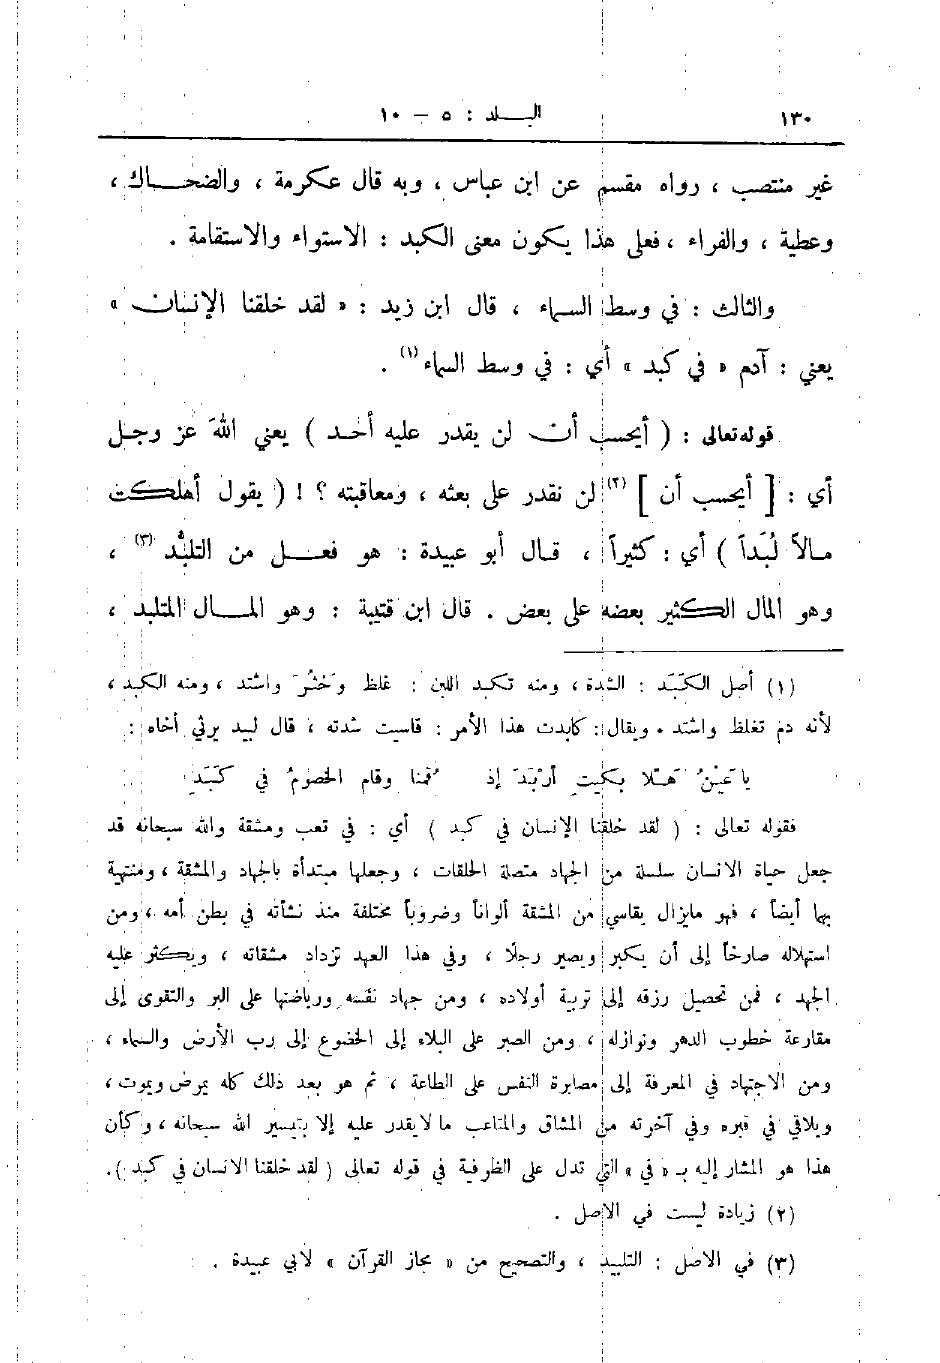 ١٣٠ البلد : ٥ – ١٠
غير منتصب ، رواه مقسم عن ابن عباس ، وبه قال عكرمة ، والضحاك ،
وعطية ، والفراء ، فعلى هذا يكون معنى الكبد : الاستواء والاستقامة .
والثالث : في وسط السماء ، قال ابن زيد : « لقد خلقنا الإنسان »
يعني : آدم « في كبد » أي : في وسط السماء (١) .
قوله تعالى : ( أيحسب أن لن يقدر عليه أحد ) يعني اللهَ عز وجل
أي : [ أيحسب أن ] (٢) لن نقدر على بعثه ، ومعاقبته ؟ ! ( يقول أهلكت
مالاً لُبَداً ) أي : كثيراً ، قال أبو عبيدة : هو فعل من التلبُّد (٣) ،
وهو المال الكثير بعضه على بعض . قال ابن قتيبة : وهو المال المتلبد ،
(١) أصل الكَبَد : الشدة ، ومنه تكبد اللبن : غلظ وخَثُرَ واشتد ، ومنه الكبد ،
لأنه دم تغلظ واشتد . ويقال : كابدت هذا الأمر : قاسيت شدته ، قال لبيد يرثي أخاه :
يا عَيْنُ هَلا بكيتِ أرْبَدَ إذ قُمنا وقام الخصومُ في كَبَدِ
فقوله تعالى : ( لقد خلقنا الإنسان في كبد ) أي : في تعب ومشقة والله سبحانه قد
جعل حياة الانسان سلسلة من الجهاد متصلة الحلقات ، وجعلها مبتدأة بالجهاد والمشقة ، ومنتهية
بها أيضاً ، فهو مايزال يقاسي من المشقة ألواناً وضروباً مختلفة منذ نشأته في بطن أمه ، ومن
استهلاله صارخاً إلى أن يكبر ويصير رجلًا ، وفي هذا العهد تزداد مشقاته ، ويكثر عليه
الجهد ، فمن تحصيل رزقه إلى تربية أولاده ، ومن جهاد نفسه ورياضتها على البر والتقوى إلى
مقارعة خطوب الدهر ونوازله ، ومن الصبر على البلاء إلى الخضوع إلى رب الأرض والسماء ،
ومن الاجتهاد في المعرفة إلى مصابرة النفس على الطاعة ، ثم هو بعد ذلك كله يمرض ويموت ،
ويلاقي في قبره وفي آخرته من المشاق والمتاعب ما لايقدر عليه إلا بتيسير الله سبحانه ، وكأن
هذا هو المشار إليه بـ « في » التي تدل على الظرفية في قوله تعالى ( لقد خلقنا الانسان في كبد ) .
(٢) زيادة ليست في الاصل .
(٣) في الاصل : التلبيد ، والتصحيح من « مجاز القرآن » لأبي عبيدة .